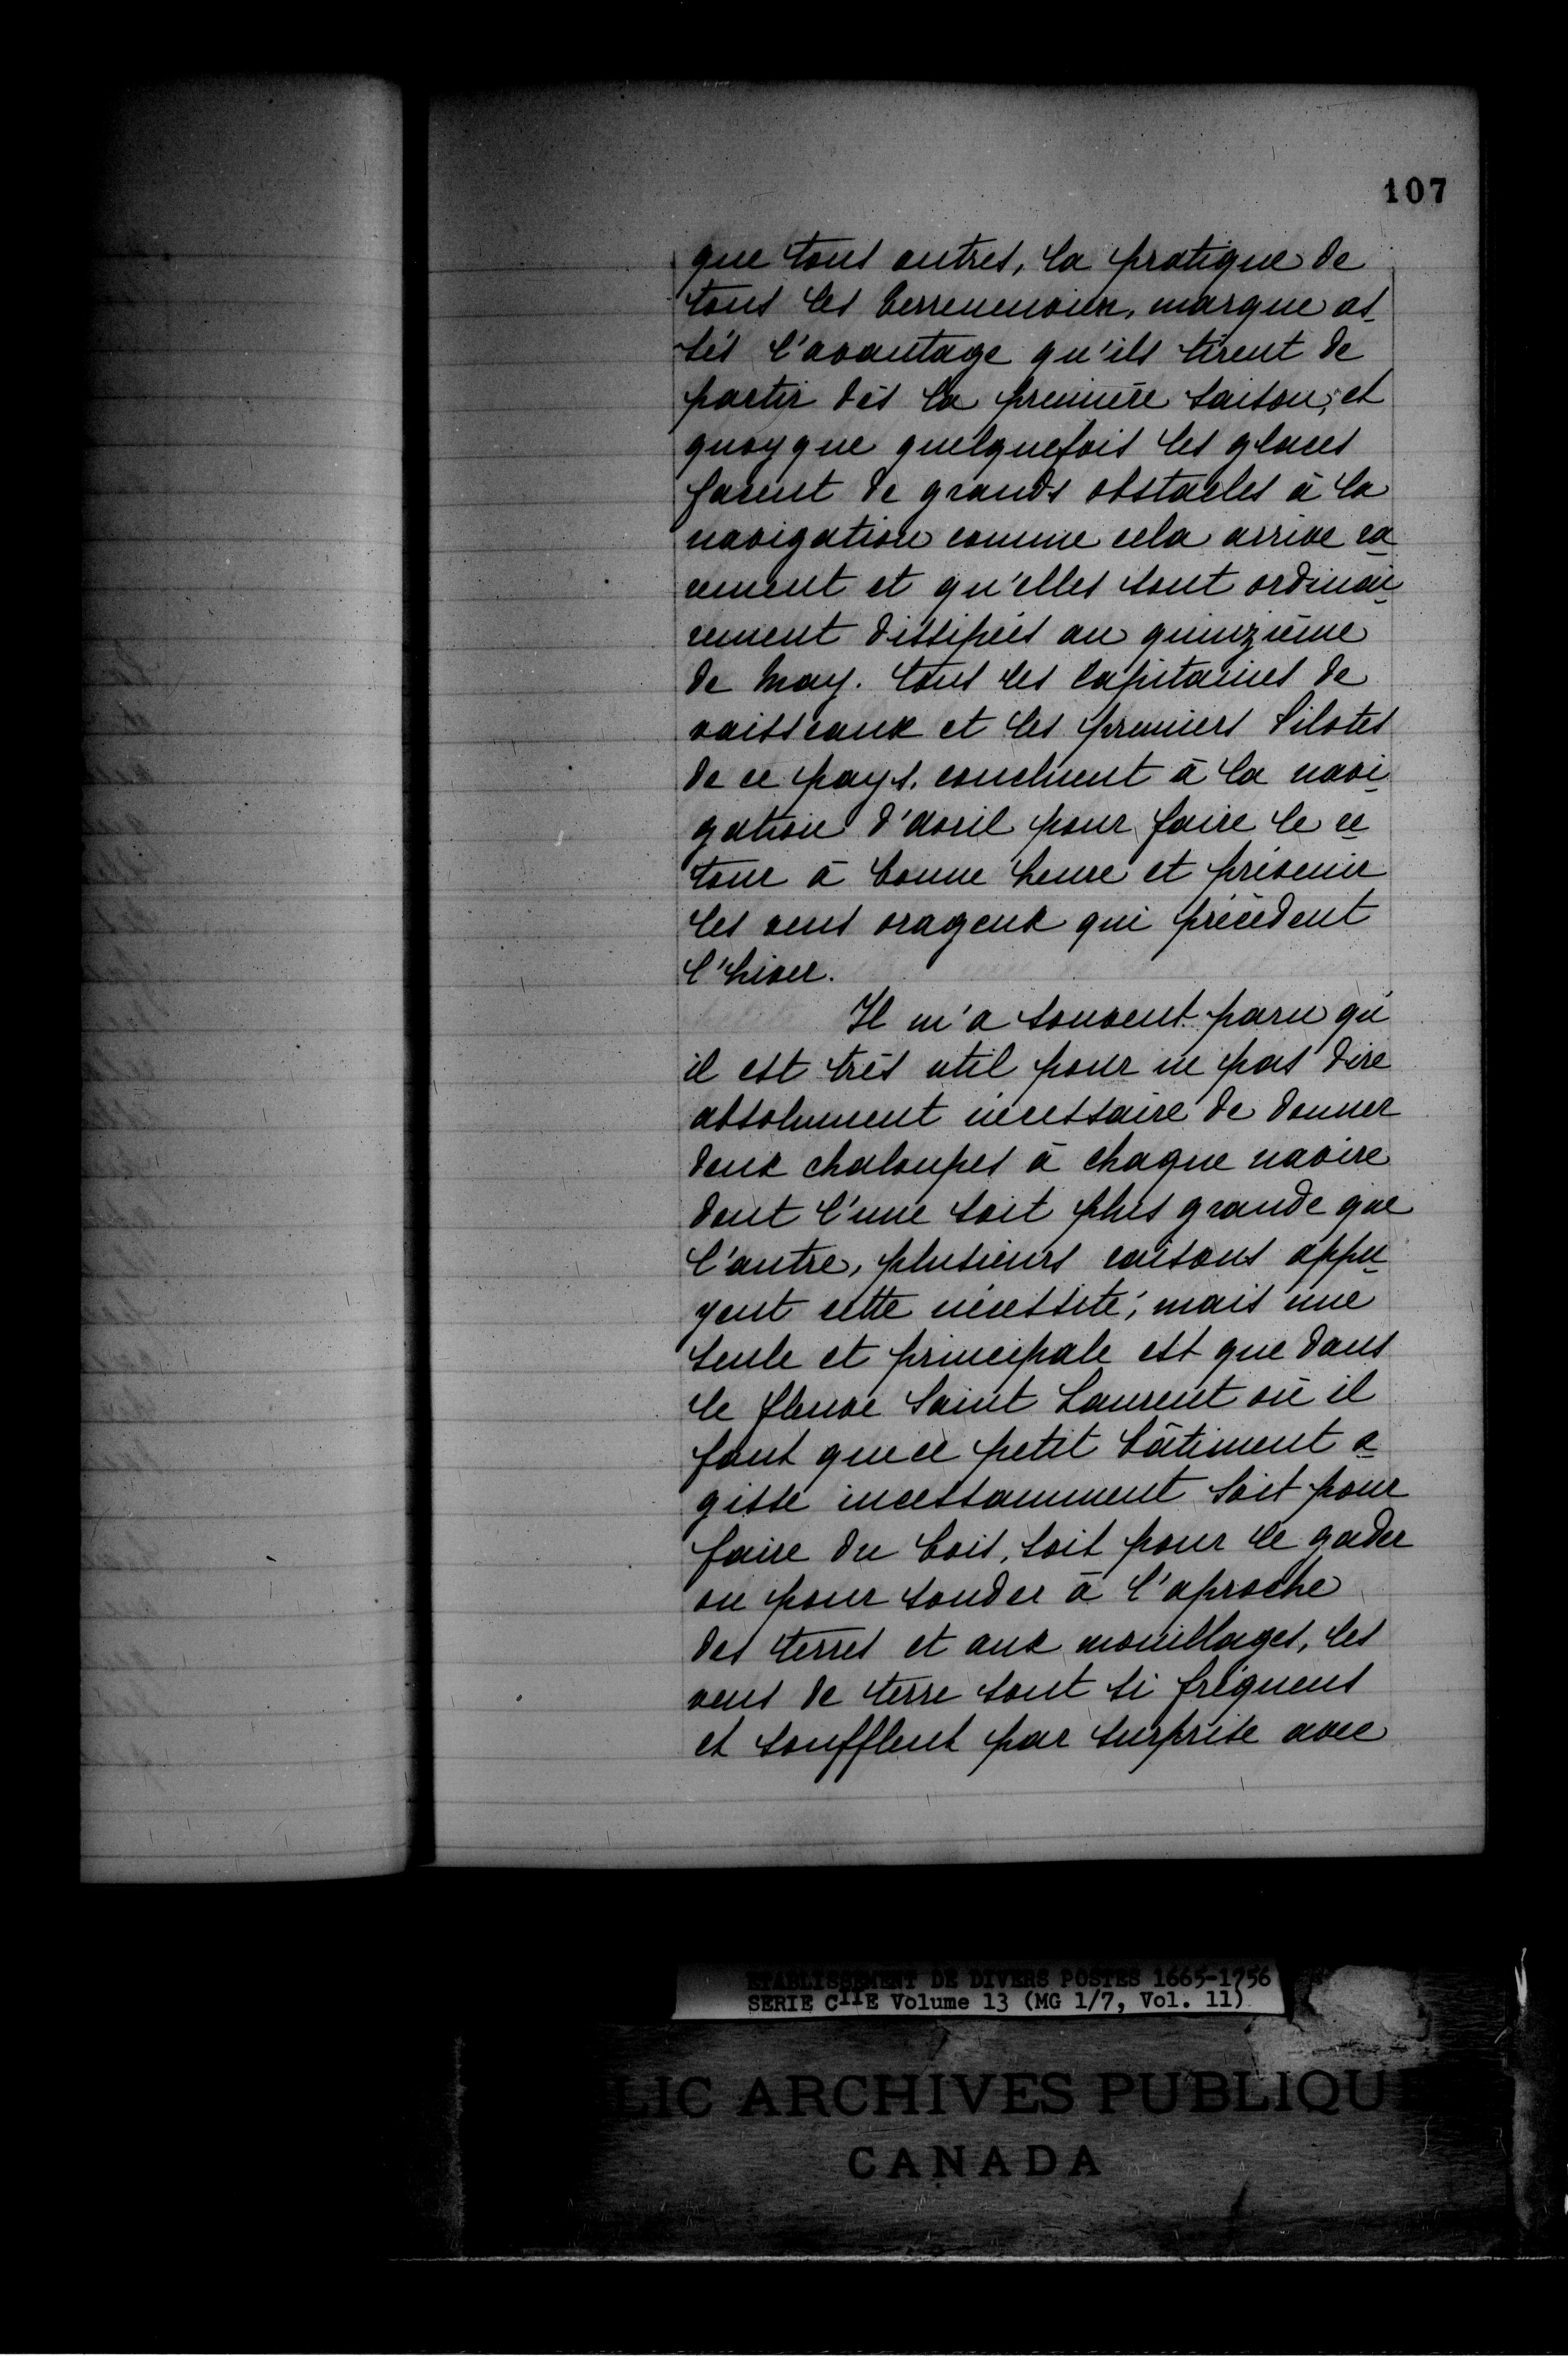 107
que tous autres, la pratique de
tous les terreneuviens, marque as-
sés l'avantage qu'ils tirent de
partir dès la première saison; et
quoyque quelquefois les glaces
fassent de grands obstacles à la
navigation comme cela arrive ra-
rement et qu'elles sont ordinai-
rement dissipées au quinzième
de may. tous les capitaines de
vaisseaux et les premiers Pilotes
de ce pays, concluent à la navi-
gation d'avril pour faire le re-
tour à bonne heure et prévenir
les vens orageux qui précèdent
l'hiver.
Il m'a souvent paru qu'
il est très util pour ne pas dire
absolument nécessaire de donner
deux chaloupes à chaque navire
dont l'une soit plus grande que
l'autre, plusieurs raisons appu-
yent cette nécessité; mais une
seule et principale est que dans
le fleuve Saint Laurent où il
faut que ce petit bâtiment a-
gisse incessamment soit pour
faire du bois, soit pour le gader
ou pour sonder à l'aproche
des terres et aux mouillages, les
vens de terre sont si fréquens
et soufflent par surprise avec
ETABLISSEMENT DE DIVERS POSTES 1665-1756
SERIE CIIE Volume 13 (MG 1/7, Vol. 11)
LIC ARCHIVES PUBLIQU
CANADA